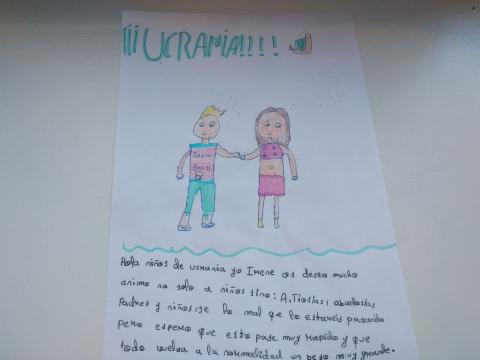 ¡¡¡UCRANIA!!!!
Hola niños de ucrania yo Irene os deseo mucho
ánimo no solo a niños sino: A, Tios/as, abuelos/as
Padres y niños, se lo mal que lo estareis pasando
pero espero que esto pase muy rapido y que
todo vuelva a la normalidad un beso muy grande.